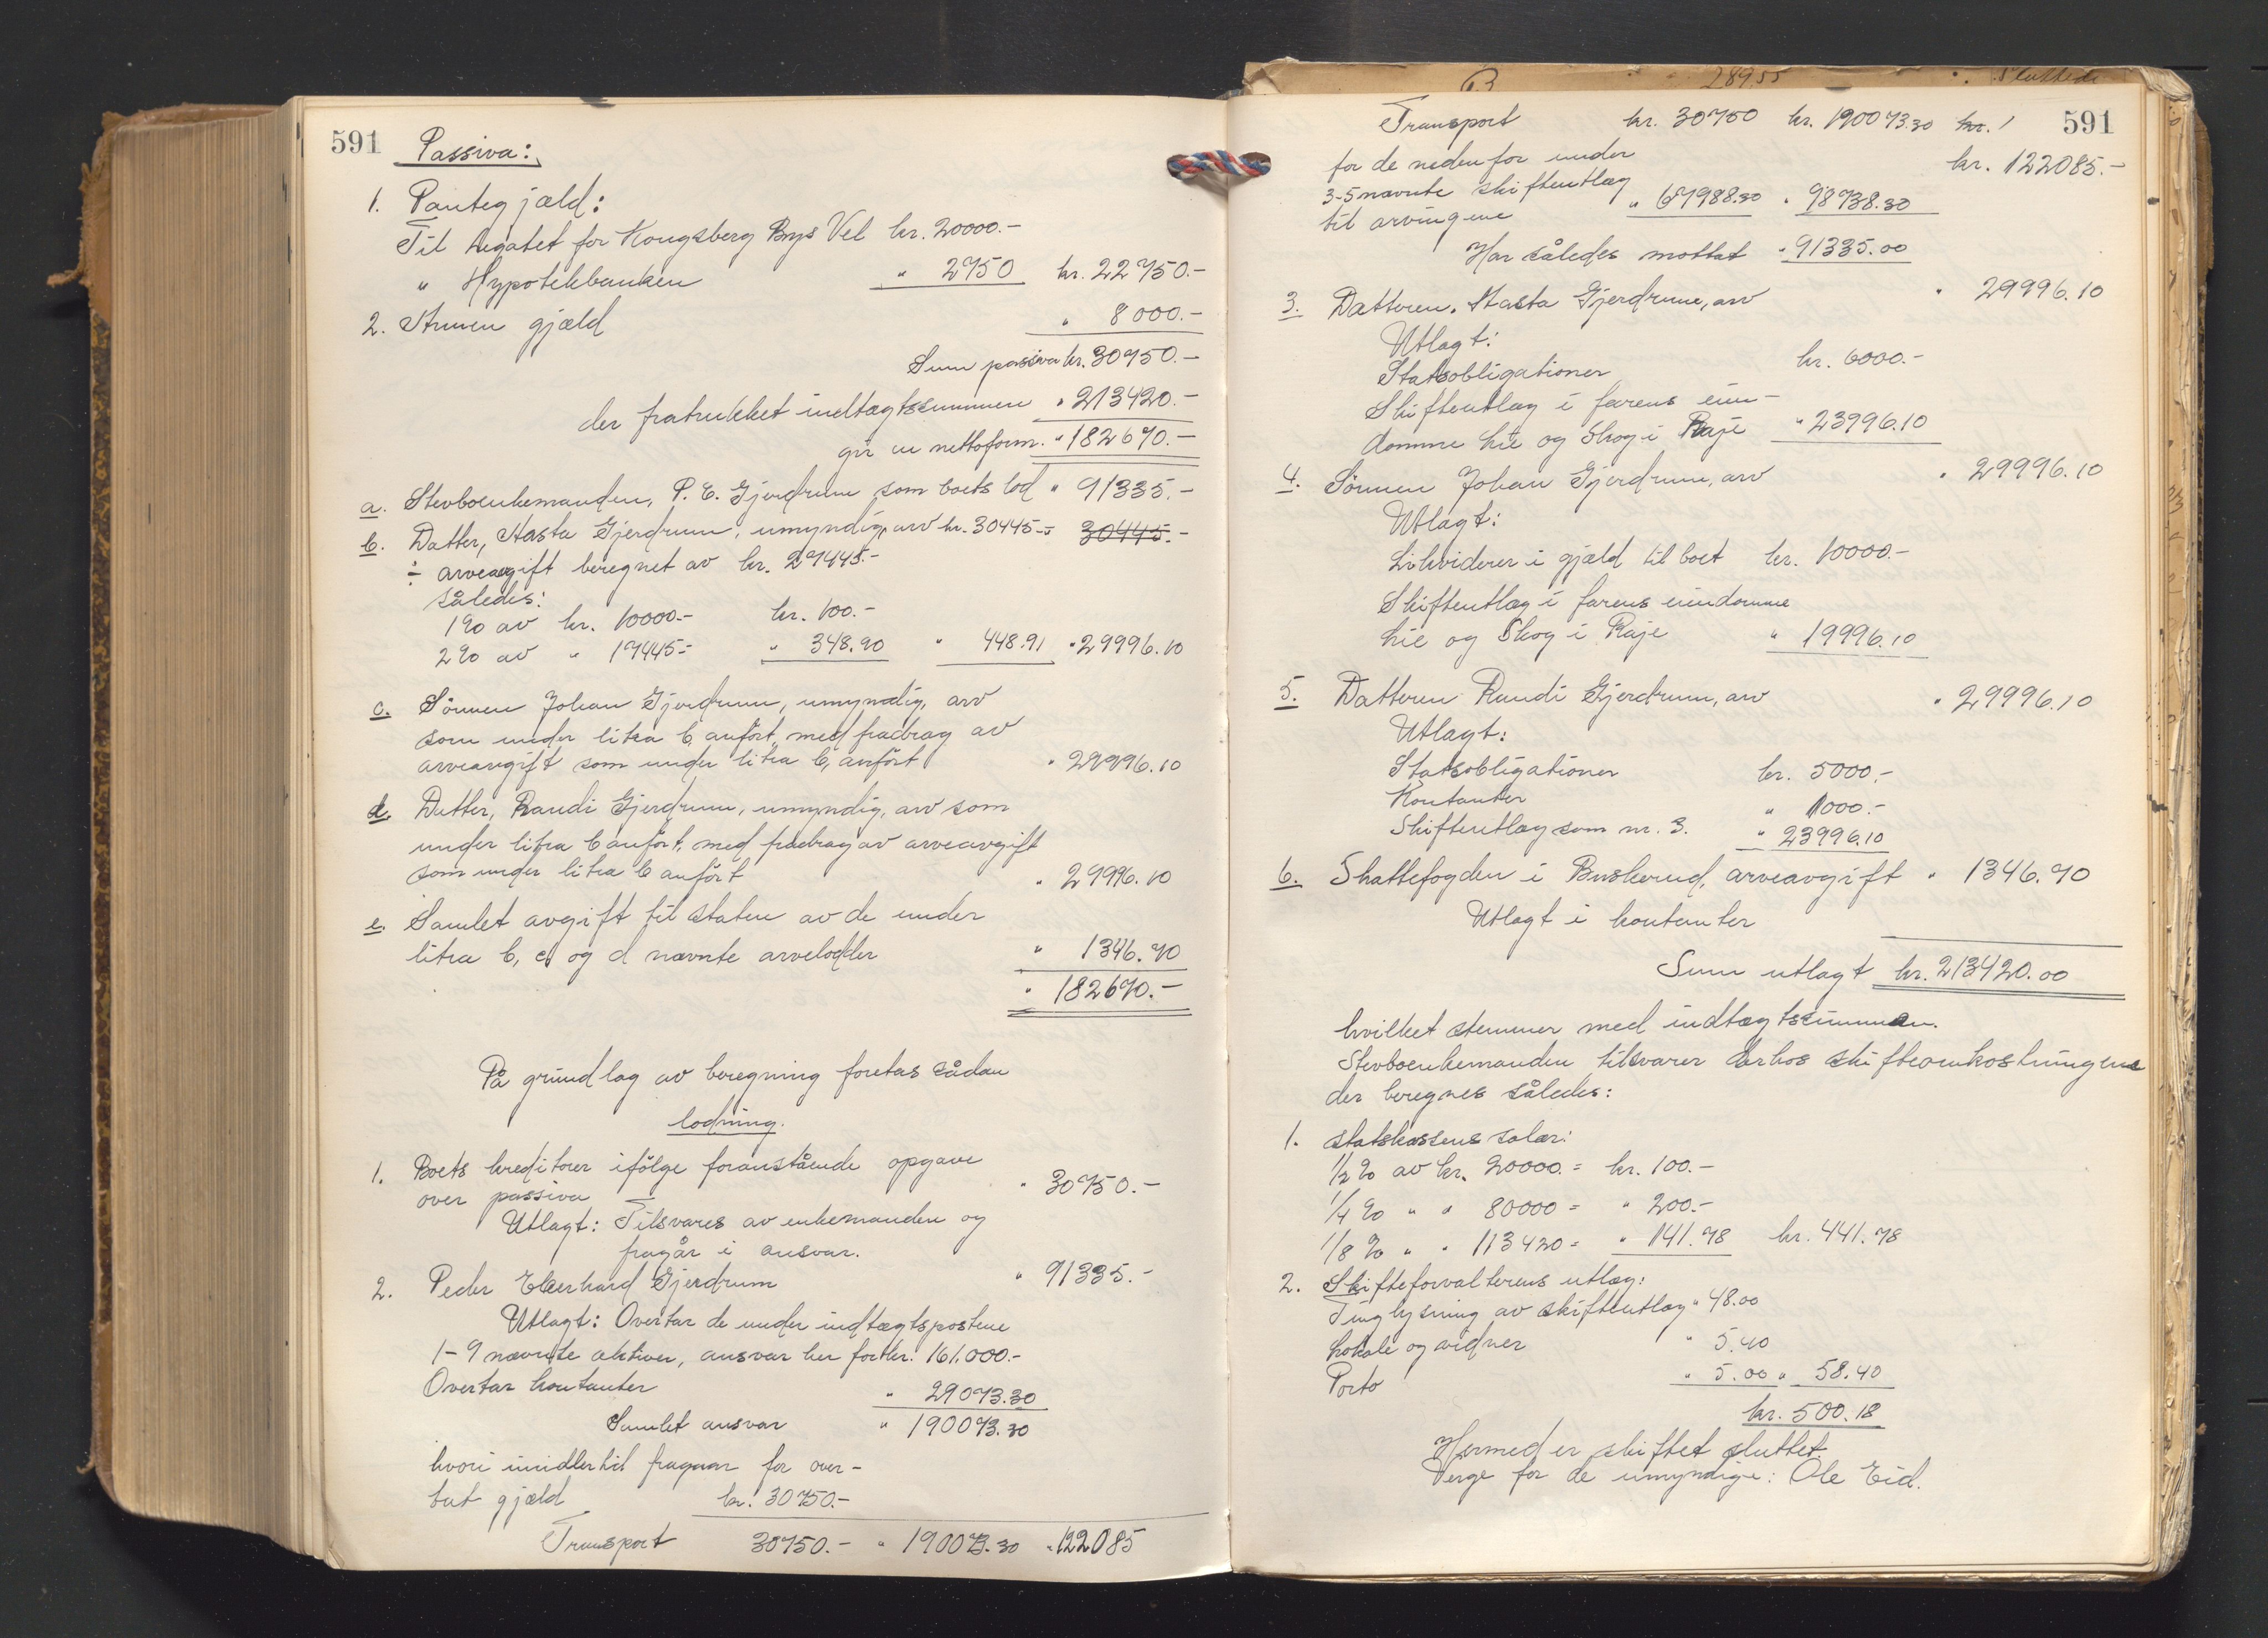 591
Passiva:
1. Pantegjæld:
Til Legatet for Kongsberg Bys Vel kr. 20000.-
" Hypotekbanken " 2750 kr. 22750.-
2. Annen gjæld " 8000.-
Sum passiva kr. 30750.-
der fratrukket indtægtssummen " 213420.-
gir en nettoform. " 182670.-
a. Stevboenkemanden, P. E. Gjerdrum som boets lod " 91335.-
b. Datter, Aasta Gjerdrum, umyndig, arv kr. 30445.- 30445.-
÷ arveavgift beregnet av kr. 27445.-
således:
1% av kr. 10000.- kr. 100.-
2% av " 17445.- " 348.90 " 448.91 " 29996.10
c. Sönnen Johan Gjerdrum, umyndig, arv
som under litra b anfört, med fradrag av
arveavgift som under litra b, anfört " 29996.10
d. Datter, Randi Gjerdrum, umyndig, arv som
under litra b anfört, med fradrag av arveavgift
som under litra b anfört " 29996.10
e. Samlet avgift til staten av de under
litra b, c og d nævnte arvelodder " 1346.70
" 182670.-
På grundlag av beregning foretas sådan
lodning.
1. Boets kreditorer ifölge foranstående opgave
over passiva " 30750.-
Utlagt: Tilsvares av enkemanden og
fragår i ansvar.
2. Peder Elserhard Gjerdrum " 91335.-
Utlagt: Overtar de under indtægtspostene
1-9 nævnte aktiver, ansvar her for kr. 161.000.-
Overtar kontanter " 29073.30
Samlet ansvar " 190073.30
hvori imidlertid fragaar for over-
tat gjæld kr. 30750.-
Transport 30750.- " 190073.30 " 122085
591
Transport kr. 30750 kr. 190073.30 kr.
kr. 122085.-
for de nedenfor under
3-5 nævnte skifteutlæg
til arvingene " 67988.30 " 98738.30
Har således mottat " 91335.00
3. Datteren, Aasta Gjerdrum, arv " 29996.10
Utlagt:
Statsobligationer kr. 6000.-
Skifteutlæg i farens eien-
domme Lie og Skog i Raje " 23996.10
4. Sönnen Johan Gjerdrum, arv " 29996.10
Utlagt:
Likviderer i gjæld til boet kr. 10000.-
Skifteutlæg i farens eiendomme
Lie og Skog i Raje " 19996.10
5. Datteren Randi Gjerdrum, arv " 29996.10
Utlagt:
Statsobligationer kr. 5000.-
Kontanter " 1000.-
Skifteutlæg som nr. 3. " 23996.10
6. Skattefogden i Buskerud, arveavgift " 1346.70
Utlagt i kontanter
Sum utlagt kr. 213420.00
hvilket stemmer med indtægtssummen.
Stevboenkemanden tilsvarer derhos skifteomkostningene
der beregnes således:
1. Statskassens salær:
1/2 % av kr. 20000.= kr. 100.-
1/4 % " " 80000 = " 200.-
1/8 % " " 113420 = " 141.78 kr. 441.78
2. Skifteforvalterens utlæg:
Tinglysning av skifteutlæg " 48.00
Lokale og vidner " 5.40
Porto " 5.00 " 58.40
kr. 500.18
Hermed er skiftet sluttet
Verge for de umyndige: Ole Eid.